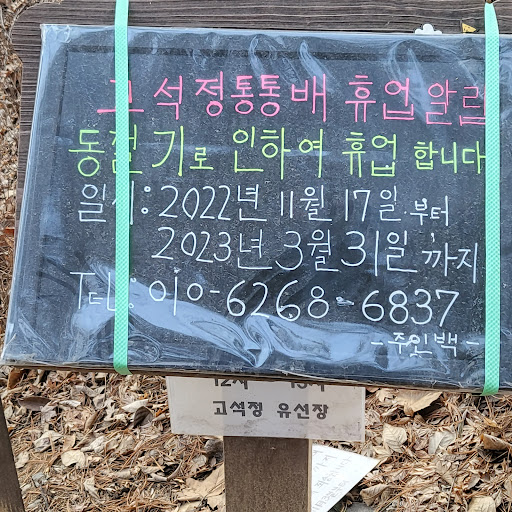 고석정통통배 휴업 알림
동절기로 인하여 휴업 합니다
일시: 2022년 11월 17일.부터
2023년 3월 31일 까지
TEL: 010-6268-6837
-주인백-
고석정 유선장